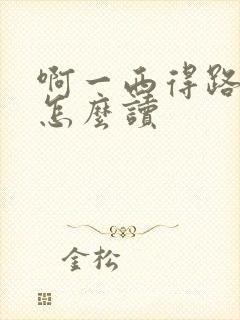 啊一西得路
怎麼讀
金松